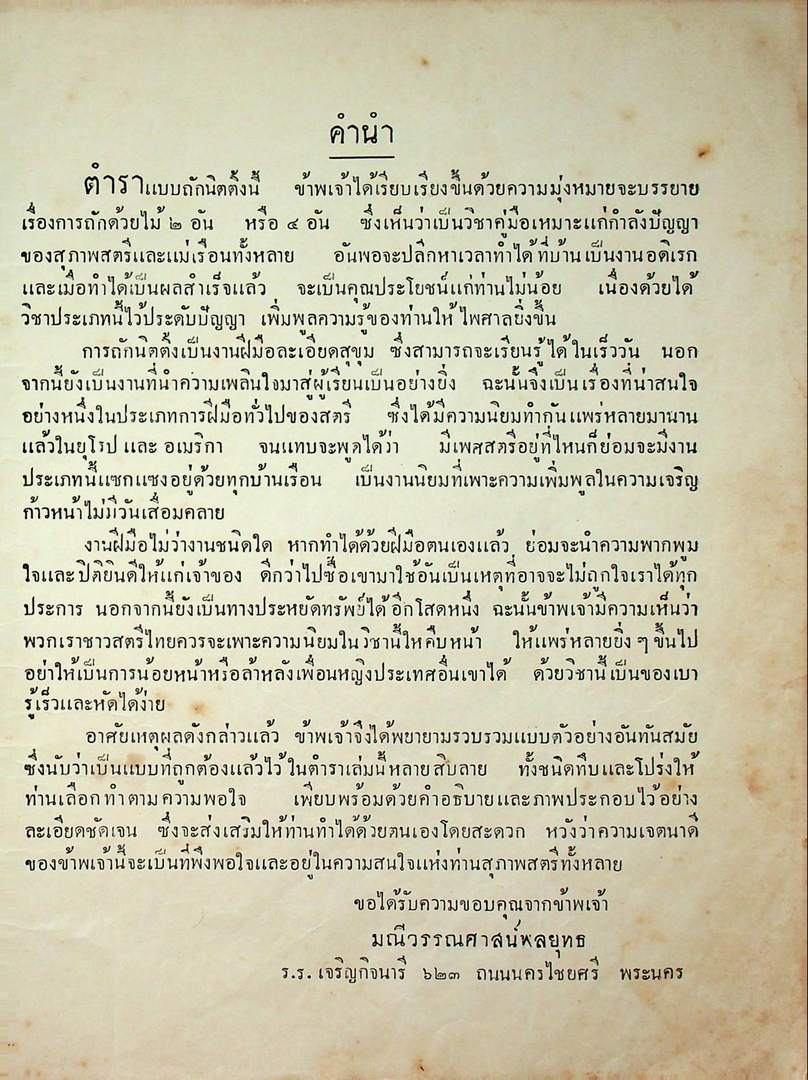 คำนำ
ตำราแบบถักนิตติ้งนี้ ข้าพเจ้าได้เรียบเรียงขึ้นด้วยความมุ่งหมายจะบรรยาย
เรื่องการถักด้วยไม้ ๒ อัน หรือ ๔ อัน ซึ่งเห็นว่าเป็นวิชาคู่มือเหมาะแก่กำลังปัญญา
ของสุภาพสตรีและแม่เรือนทั้งหลาย อันพอจะปลีกหาเวลาทำได้ที่บ้านเป็นงานอดิเรก
และเมื่อทำได้เป็นผลสำเร็จแล้ว จะเป็นคุณประโยชน์แก่ท่านไม่น้อย เนื่องด้วยได้
วิชาประเภทนี้ไว้ประดับปัญญา เพิ่มพูลความรู้ของท่านให้ไพศาลยิ่งขึ้น
การถักนิตติ้งเป็นงานฝีมือละเอียดสุขุม ซึ่งสามารถจะเรียนรู้ได้ในเร็ววัน นอก
จากนี้ยังเป็นงานที่นำความเพลินใจมาสู่ผู้เรียนเป็นอย่างยิ่ง ฉะนั้นจึงเป็นเรื่องที่น่าสนใจ
อย่างหนึ่งในประเภทการฝีมือทั่วไปของสตรี ซึ่งได้มีความนิยมทำกันแพร่หลายมานาน
แล้วในยุโรป และ อเมริกา จนแทบจะพูดได้ว่า มีเพศสตรีอยู่ที่ไหนก็ย่อมจะมีงาน
ประเภทนี้แซกแซงอยู่ด้วยทุกบ้านเรือน เป็นงานนิยมที่เพาะความเพิ่มพูลในความเจริญ
ก้าวหน้าไม่มีวันเสื่อมคลาย
งานฝีมือไม่ว่างานชนิดใด หากทำได้ด้วยฝีมือตนเองแล้ว ย่อมจะนำความพากพูม
ใจและปิติยินดีให้แก่เจ้าของ ดีกว่าไปซื้อเขามาใช้อันเป็นเหตุที่อาจจะไม่ถูกใจเราได้ทุก
ประการ นอกจากนี้ยังเป็นทางประหยัดทรัพย์ได้อีกโสดหนึ่ง ฉะนั้นข้าพเจ้ามีความเห็นว่า
พวกเราชาวสตรีไทยควรจะเพาะความนิยมในวิชานี้ให้คืบหน้า ให้แพร่หลายยิ่ง ๆ ขึ้นไป
อย่าให้เป็นการน้อยหน้าหรือล้าหลังเพื่อนหญิงประเทศอื่นเขาได้ ด้วยวิชานี้เป็นของเบา
รู้เร็วและหัดได้ง่าย
อาศัยเหตุผลดังกล่าวแล้ว ข้าพเจ้าจึงได้พยายามรวบรวมแบบตัวอย่างอันทันสมัย
ซึ่งนับว่าเป็นแบบที่ถูกต้องแล้วไว้ในตำราเล่มนี้หลายสิบลาย ทั้งชนิดทึบและโปร่งให้
ท่านเลือกทำตามความพอใจ เพียบพร้อมด้วยคำอธิบายและภาพประกอบไว้อย่าง
ละเอียดชัดเจน ซึ่งจะส่งเสริมให้ท่านทำได้ด้วยตนเองโดยสะดวก หวังว่าความเจตนาดี
ของข้าพเจ้านี้จะเป็นที่พึงพอใจและอยู่ในความสนใจแห่งท่านสุภาพสตรีทั้งหลาย
ขอได้รับความขอบคุณจากข้าพเจ้า
มณีวรรณศาสน์พลยุทธ
ร.ร. เจริญกิจนารี ๖๒๓ ถนนนครไชยศรี พระนคร